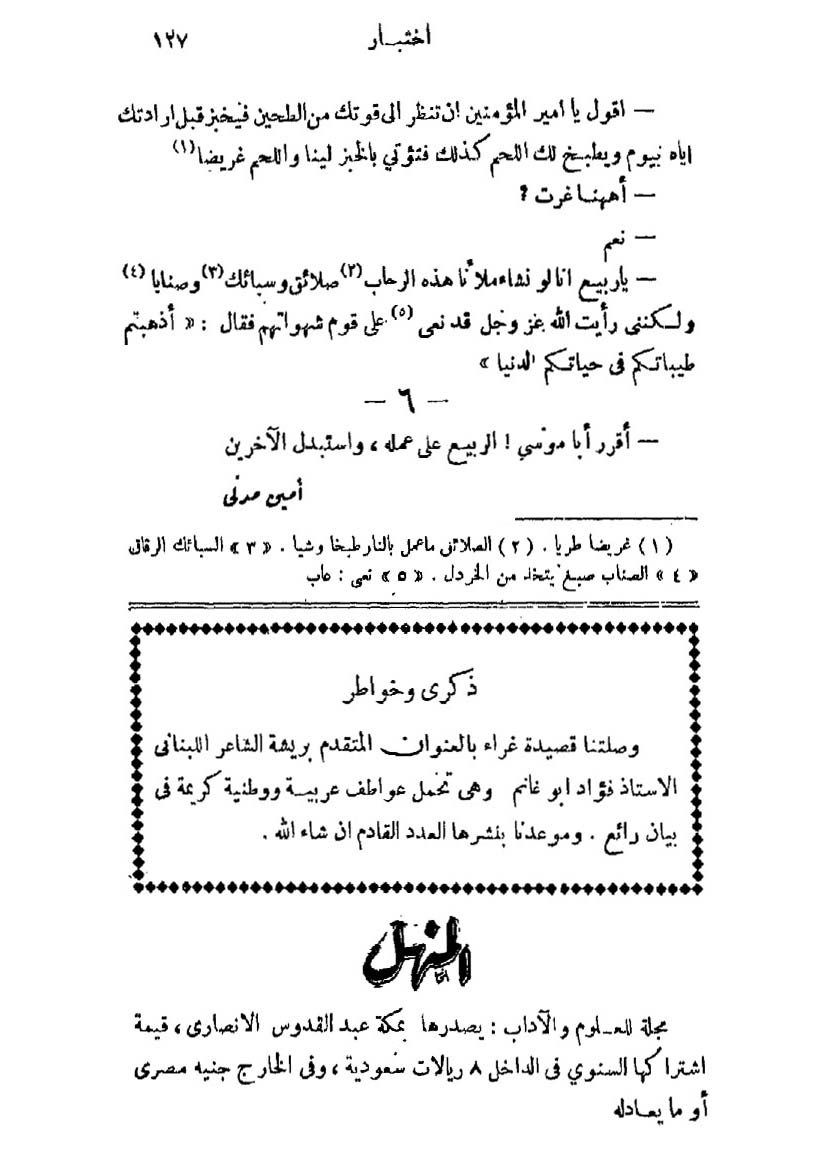 اختبار ١٢٧
— اقول يا امير المؤمنين ان تنظر الى قوتك من الطحين فيخبز قبل ارادتك
اياه بيوم ويطبخ لك اللحم كذلك فتؤتي بالخبز لينا واللحم غريضا (١)
— أههنا غرت ؟
— نعم
— ياربيع انا لو نشاء ملأنا هذه الرحاب (٢) صلائق وسبائك (٣) وصنابا (٤)
ولكننى رأيت الله عز وجل قد نعى (٥) على قوم شهواتهم فقال : « أذهبتم
طيباتكم فى حياتكم الدنيا »
— ٦ —
— أقرر أبا موسي ! الربيع على عمله ، واستبدل الآخرين
أمين مدنى
(١) غريضا طريا . (٢) الصلائق ماعمل بالنار طبخا وشيا . « ٣ » السبائك الرقاق
« ٤ » الصناب صبغ يتخذ من الخردل . « ٥ » نعى : عاب
ذكرى وخواطر
وصلتنا قصيدة غراء بالعنوان المتقدم بريشة الشاعر اللبنانى
الاستاذ فؤاد ابو غانم وهى تحمل عواطف عربية ووطنية كريمة فى
بيان رائع . وموعدنا بنشرها العدد القادم ان شاء الله .
المنهل
مجلة للعلوم والآداب : يصدرها بمكة عبد القدوس الانصارى ، قيمة
اشتراكها السنوي فى الداخل ٨ ريالات سعودية ، وفى الخارج جنيه مصرى
أو ما يعادله